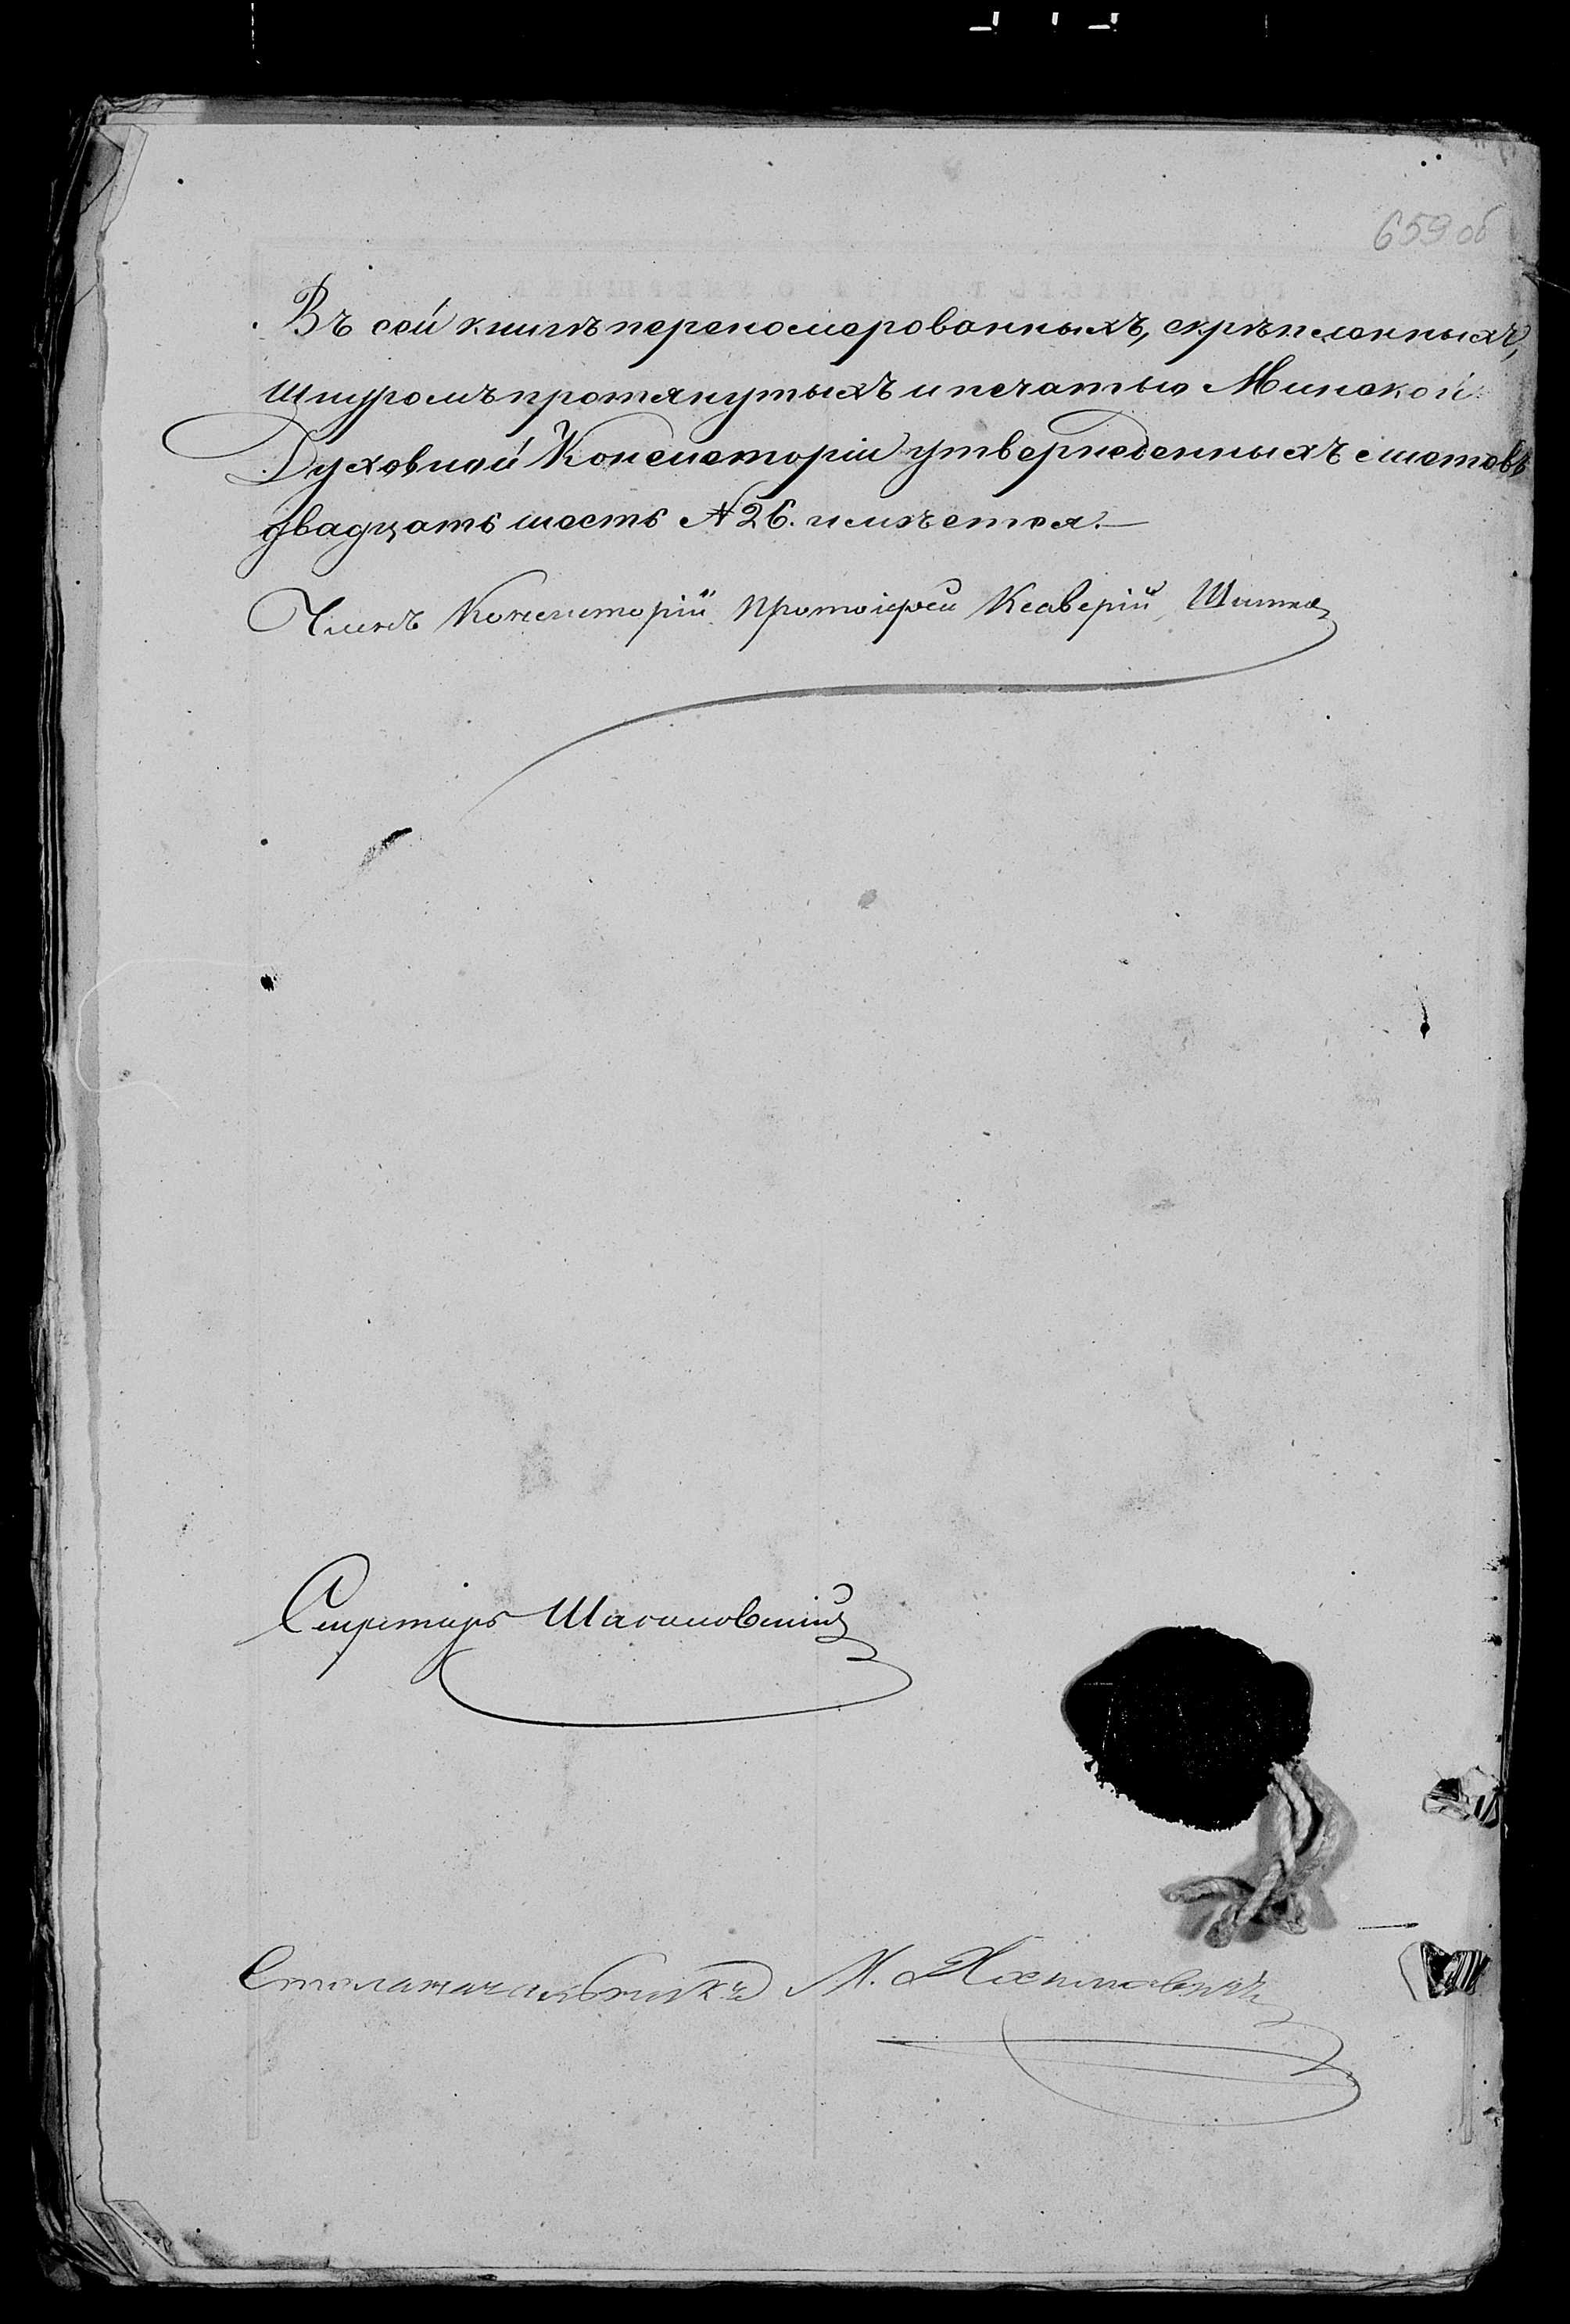 659 об
Въ сей книгѣ переномерованныхъ, скрѣпленныхъ,
шнуромъ протянутыхъ и печатью Минской
Духовной Консисторіи утвержденныхъ листовъ
двадцать шесть № 26. имѣется.—
Членъ Консисторіи Протоіерей Ксаверій
Секретарь
Столоначальникъ М.